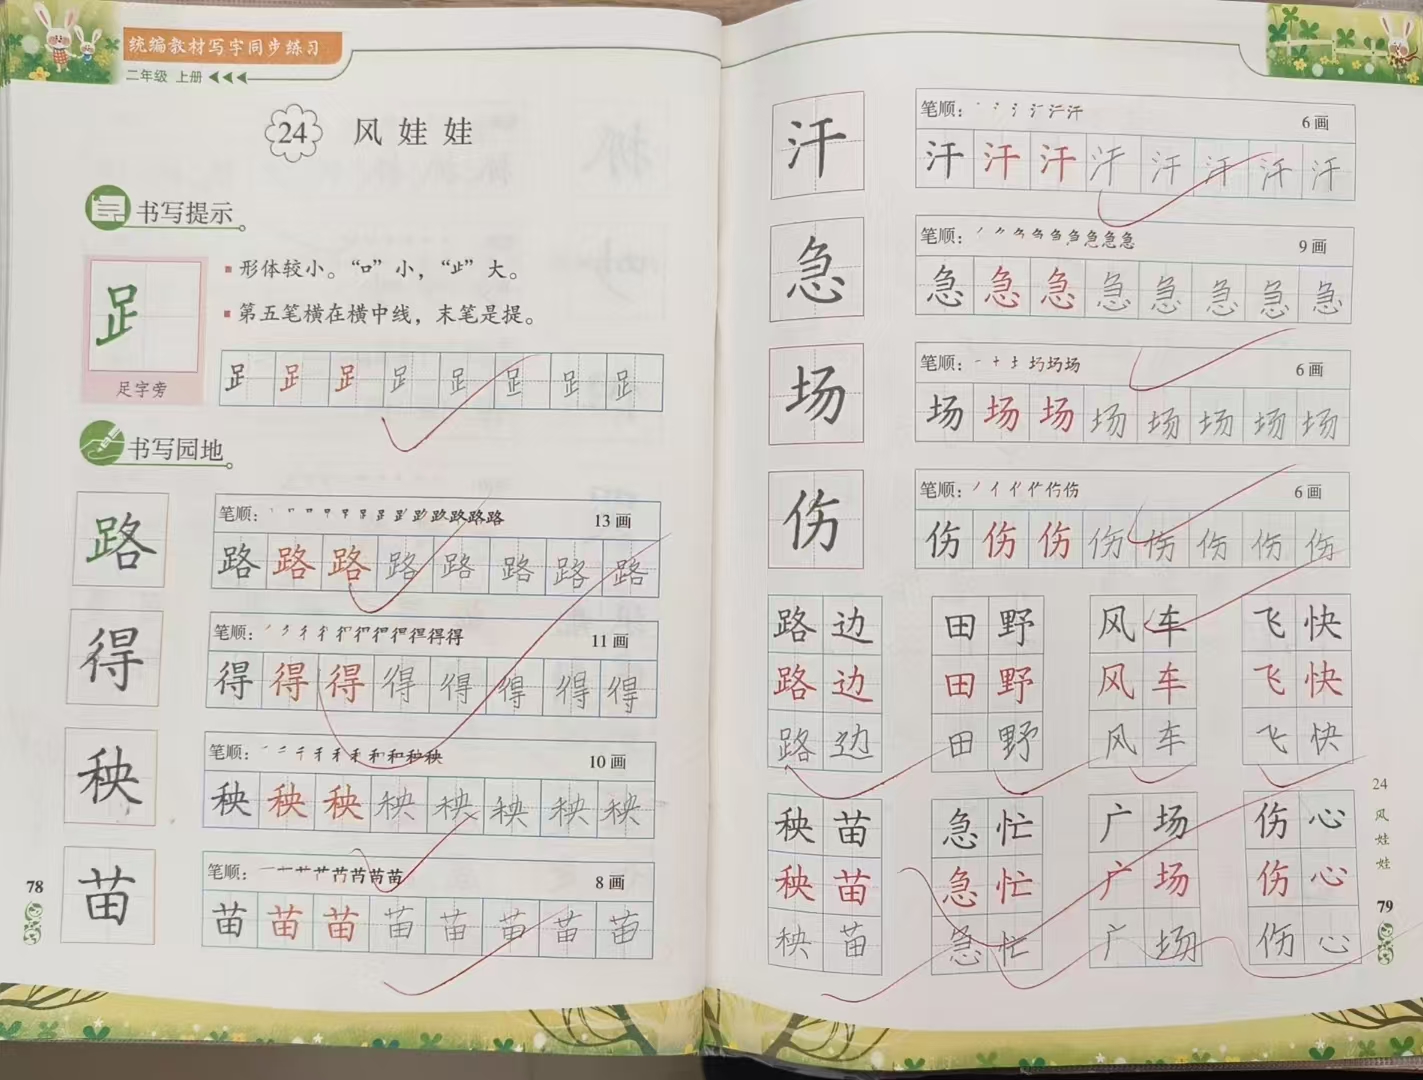 统编教材写字同步练习
二年级 上册
24 风娃娃
书写提示
⻊
足字旁
形体较小。“口”小，“龰”大。
第五笔横在横中线，末笔是提。
⻊ ⻊ ⻊ ⻊ ⻊ ⻊ ⻊ ⻊
书写园地
路
笔顺： 13画
路 路 路 路 路 路 路 路
得
笔顺： 11画
得 得 得 得 得 得 得 得
秧
笔顺： 10画
秧 秧 秧 秧 秧 秧 秧 秧
苗
笔顺： 8画
苗 苗 苗 苗 苗 苗 苗 苗
78
汗
笔顺： 6画
汗 汗 汗 汗 汗 汗 汗 汗
急
笔顺： 9画
急 急 急 急 急 急 急 急
场
笔顺： 6画
场 场 场 场 场 场 场 场
伤
笔顺： 6画
伤 伤 伤 伤 伤 伤 伤 伤
路边 田野 风车 飞快
路边 田野 风车 飞快
路边 田野 风车 飞快
秧苗 急忙 广场 伤心
秧苗 急忙 广场 伤心
秧苗 急忙 广场 伤心
24 风娃娃
79